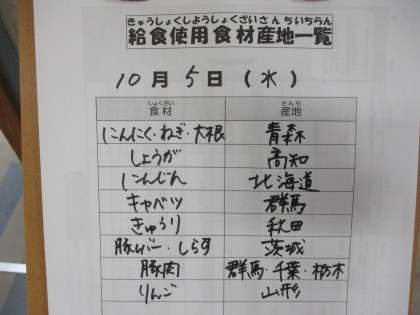 きゅうしょくしようしょくざいさんちいちらん
給食使用食材産地一覧
10月5日(水)
しょくざい さんち
食材 産地
にんにく・ねぎ・大根 青森
しょうが 高知
にんじん 北海道
キャベツ 群馬
きゅうり 秋田
豚レバー・しらす 茨城
豚肉 群馬・千葉・栃木
りんご 山形